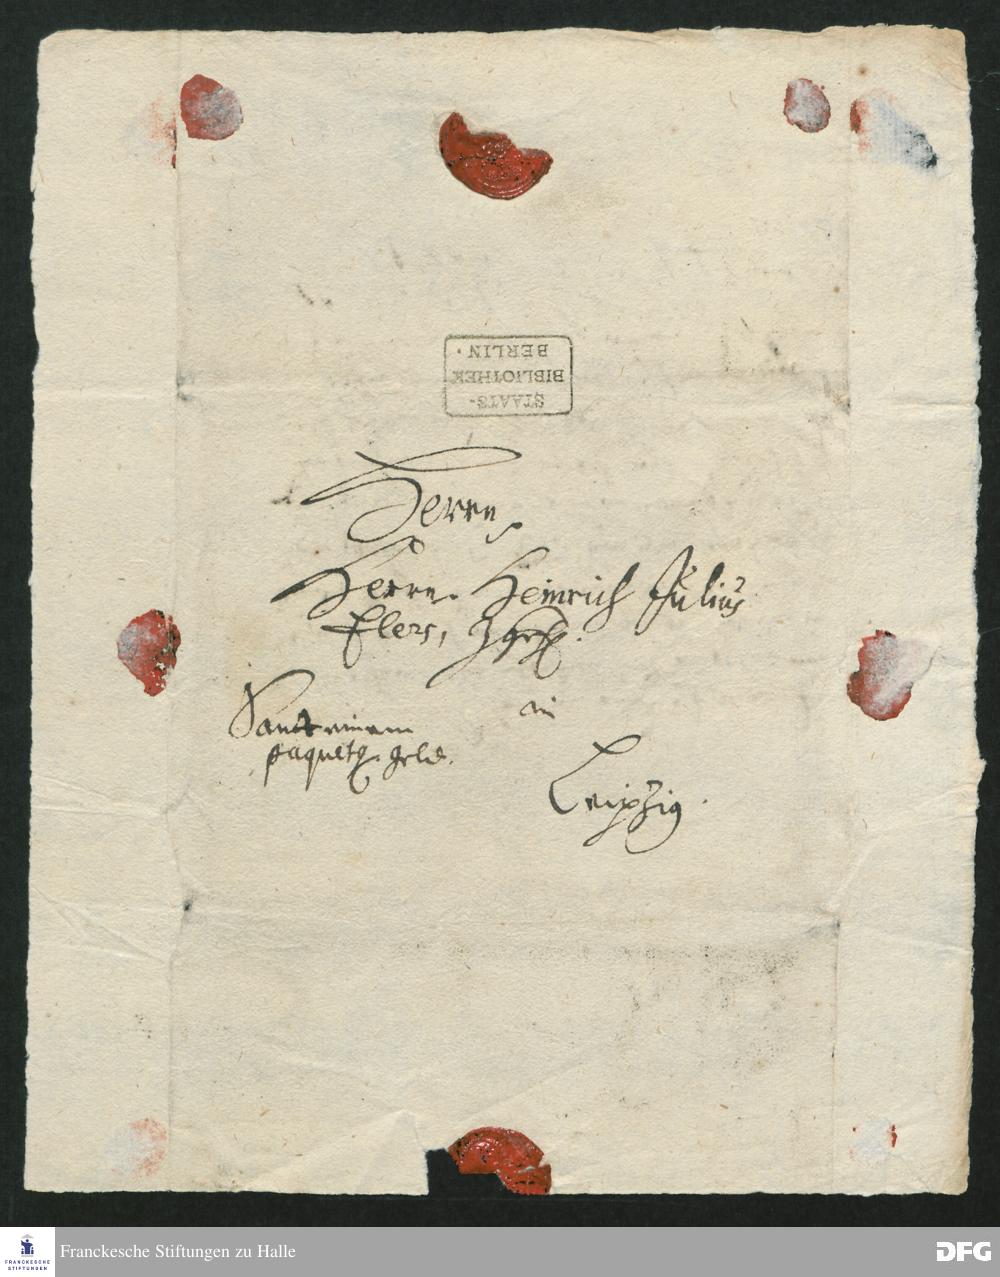 STAATS-
BIBLIOTHEK
BERLIN.
Herrn,
Herrn. Heinrich Julius
Elers,
in
Sambt einem
paquetg. geld.
Leipzig.
FRANCKESCHE
STIFTUNGEN
Franckesche Stiftungen zu Halle
DFG